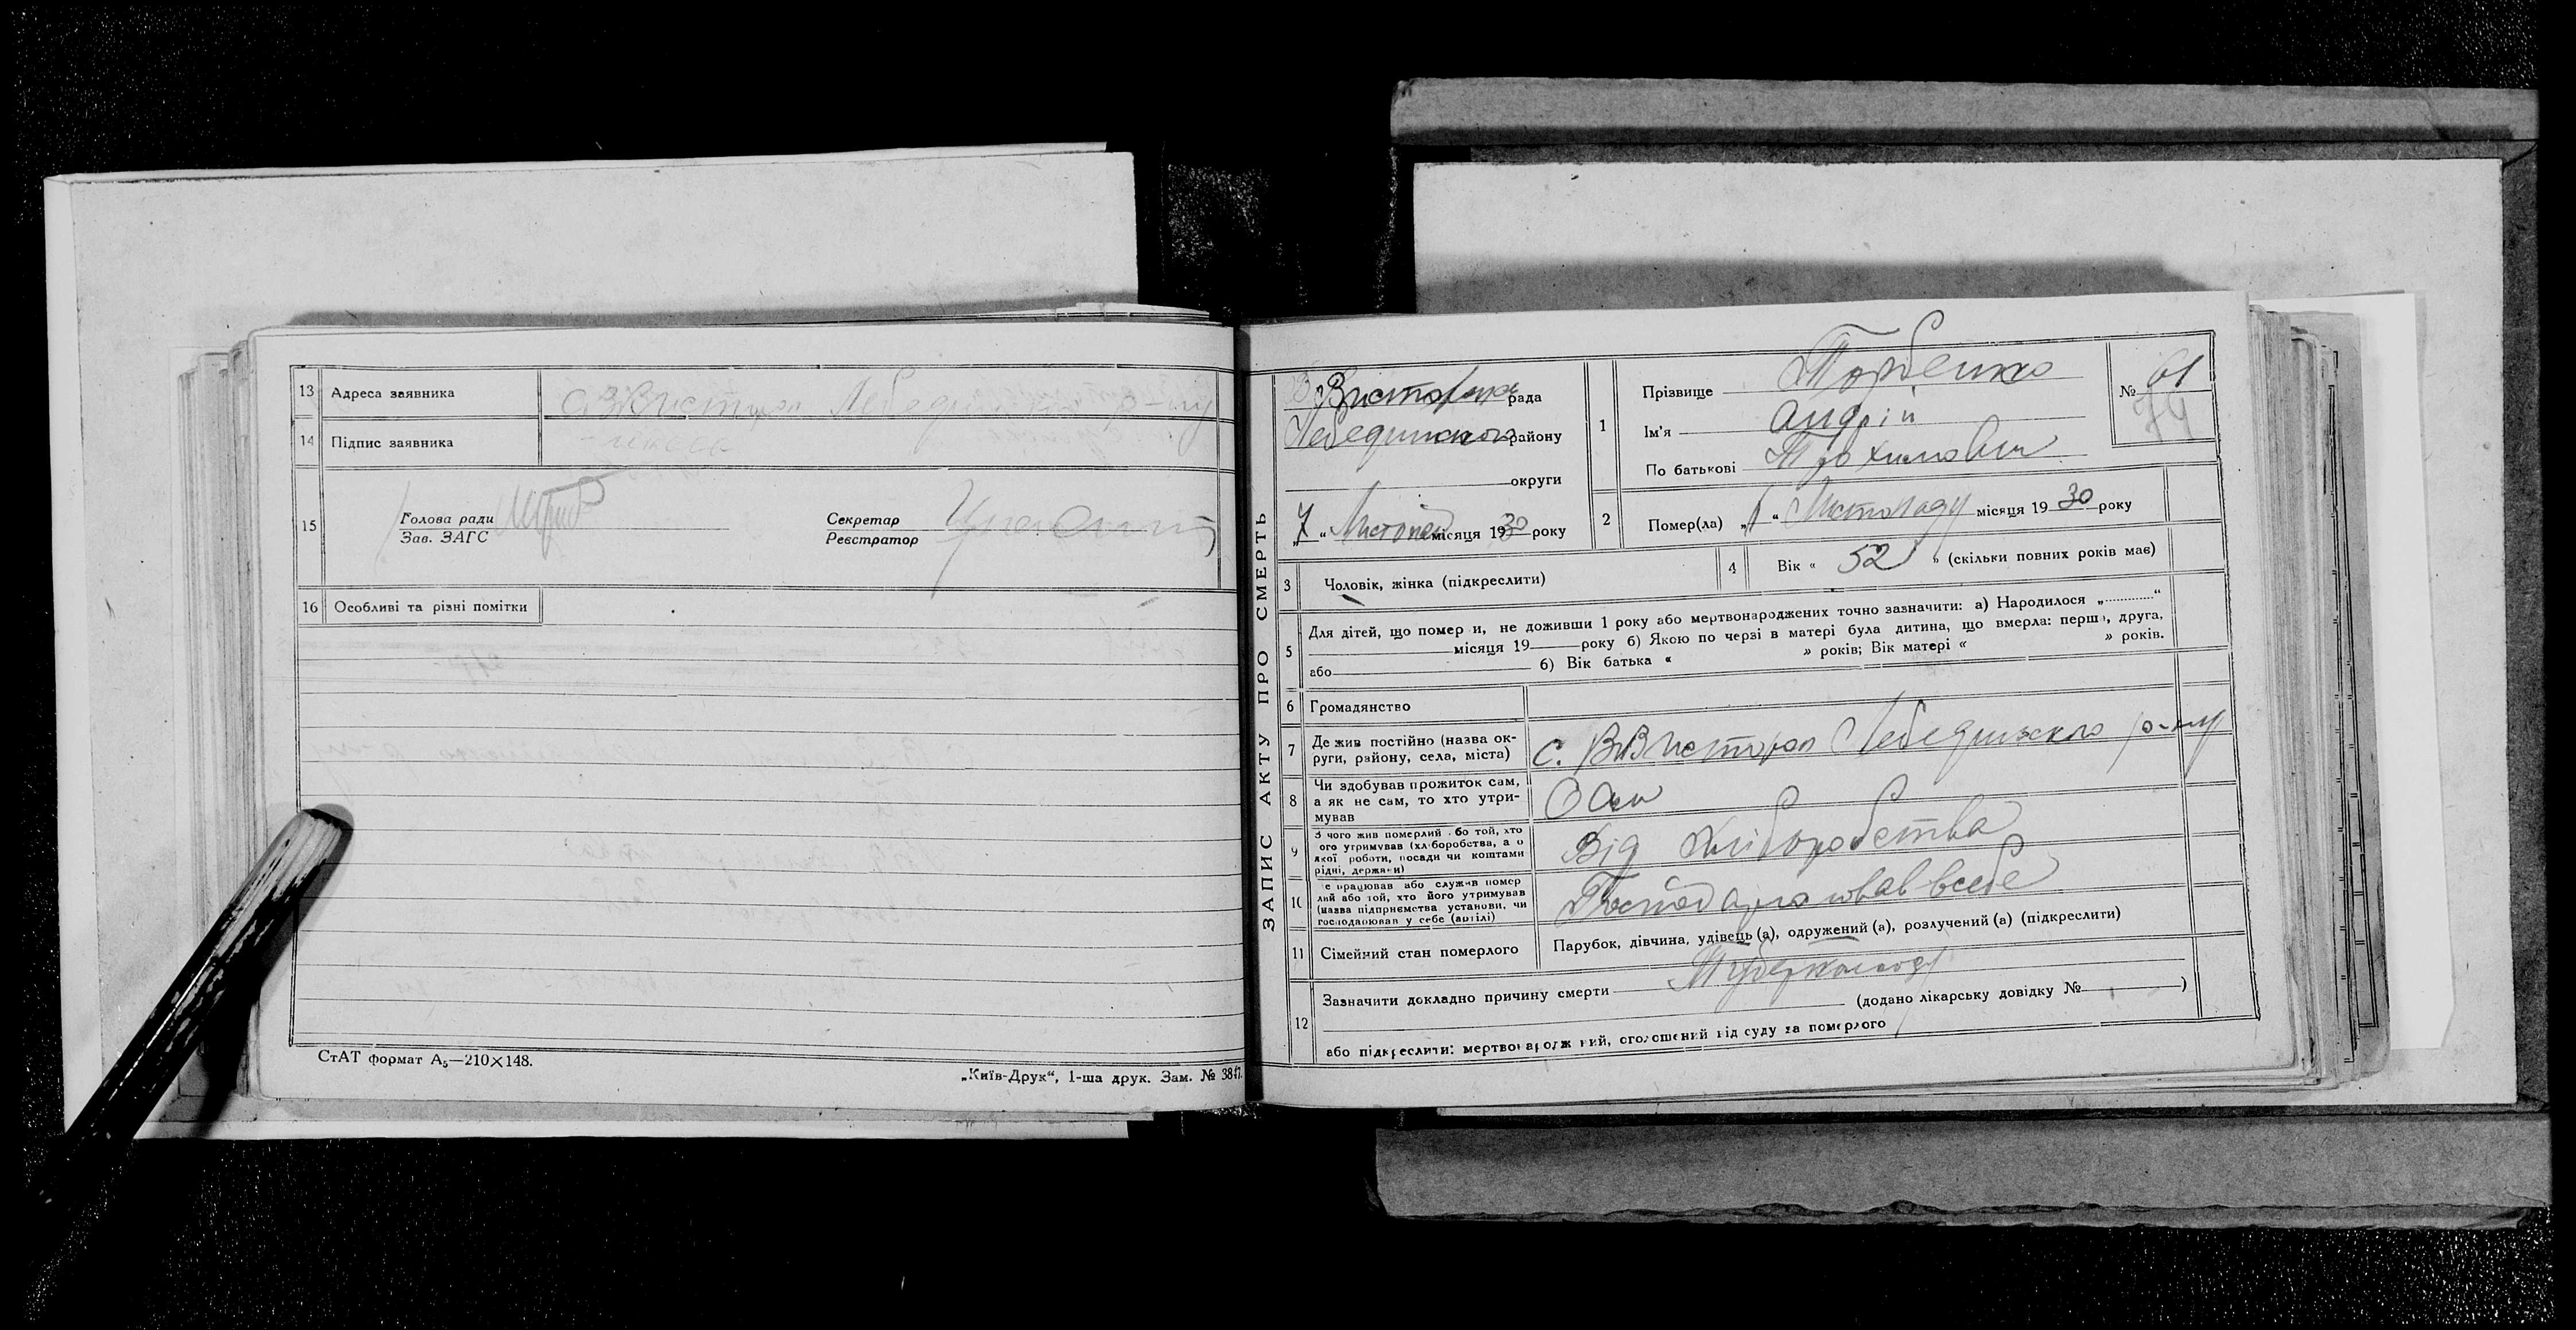 13 Адреса заявника с. В Вистороп Лебединського р-ну
14 Підпис заявника
15 Голова ради
Зав. ЗАГС
Секретар
Реєстратор
16 Особливі та різні помітки
СтАТ формат А5—210×148.
„Київ-Друк“, 1-ша друк. Зам. №
ЗАПИС АКТУ ПРО СМЕРТЬ
рада
Лебединського району
округи
„7“ Листопад місяця 1930 року
1 Прізвище Торбенко
Ім'я Андрій
По батькові Трохимович
№ 61
74
2 Помер(ла) „ “ Листопаду місяця 1930 року
3 Чоловік, жінка (підкреслити)
4 Вік « 52 » (скільки повних років має)
5 Для дітей, що помер и, не доживши 1 року або мертвонароджених точно зазначити: а) Народилося „.............“
місяця 19 року б) Якою по черзі в матері була дитина, що вмерла: перша, друга,
або б) Вік батька « » років; Вік матері « » років.
6 Громадянство
7 Де жив постійно (назва ок-
руги, району, села, міста) с. В Вистороп Лебединского р-ну
8 Чи здобував прожиток сам,
а як не сам, то хто утри-
мував Сам
9 З чого жив померлий або той, хто
ого утримував (хліборобства, а о
якої роботи, посади чи коштами
рідні, держави) Від хліборобства
10 е працював або служив помер
лий або той, хто його утримував
(назва підприємства установи, чи
господаював у себе (артілі) Господарював в себе
11 Сімейний стан померлого Парубок, дівчина, удівець (а), одружений (а), розлучений (а) (підкреслити)
12 Зазначити докладно причину смерти
(додано лікарську довідку № )
або підкреслити: мертвонароджений, оголошений від суду за померлого